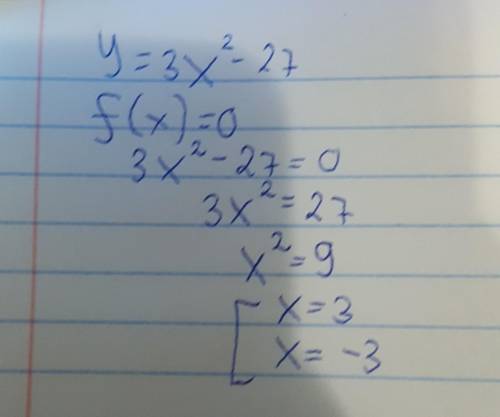 y = 3x² - 27
f(x) = 0
3x² - 27 = 0
3x² = 27
x² = 9
[ x = 3
x = -3